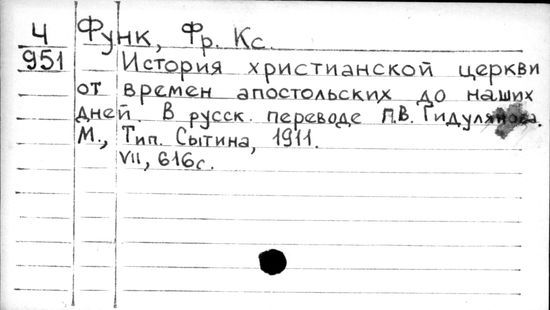 Ч Функ, Фр. Кс.
951 История христианской церкви
от времен апостольских до наших
дней. В русск. переводе П.В. Гидулянова.
М., Тип. Сытина, 1911.
VII, 616 с.